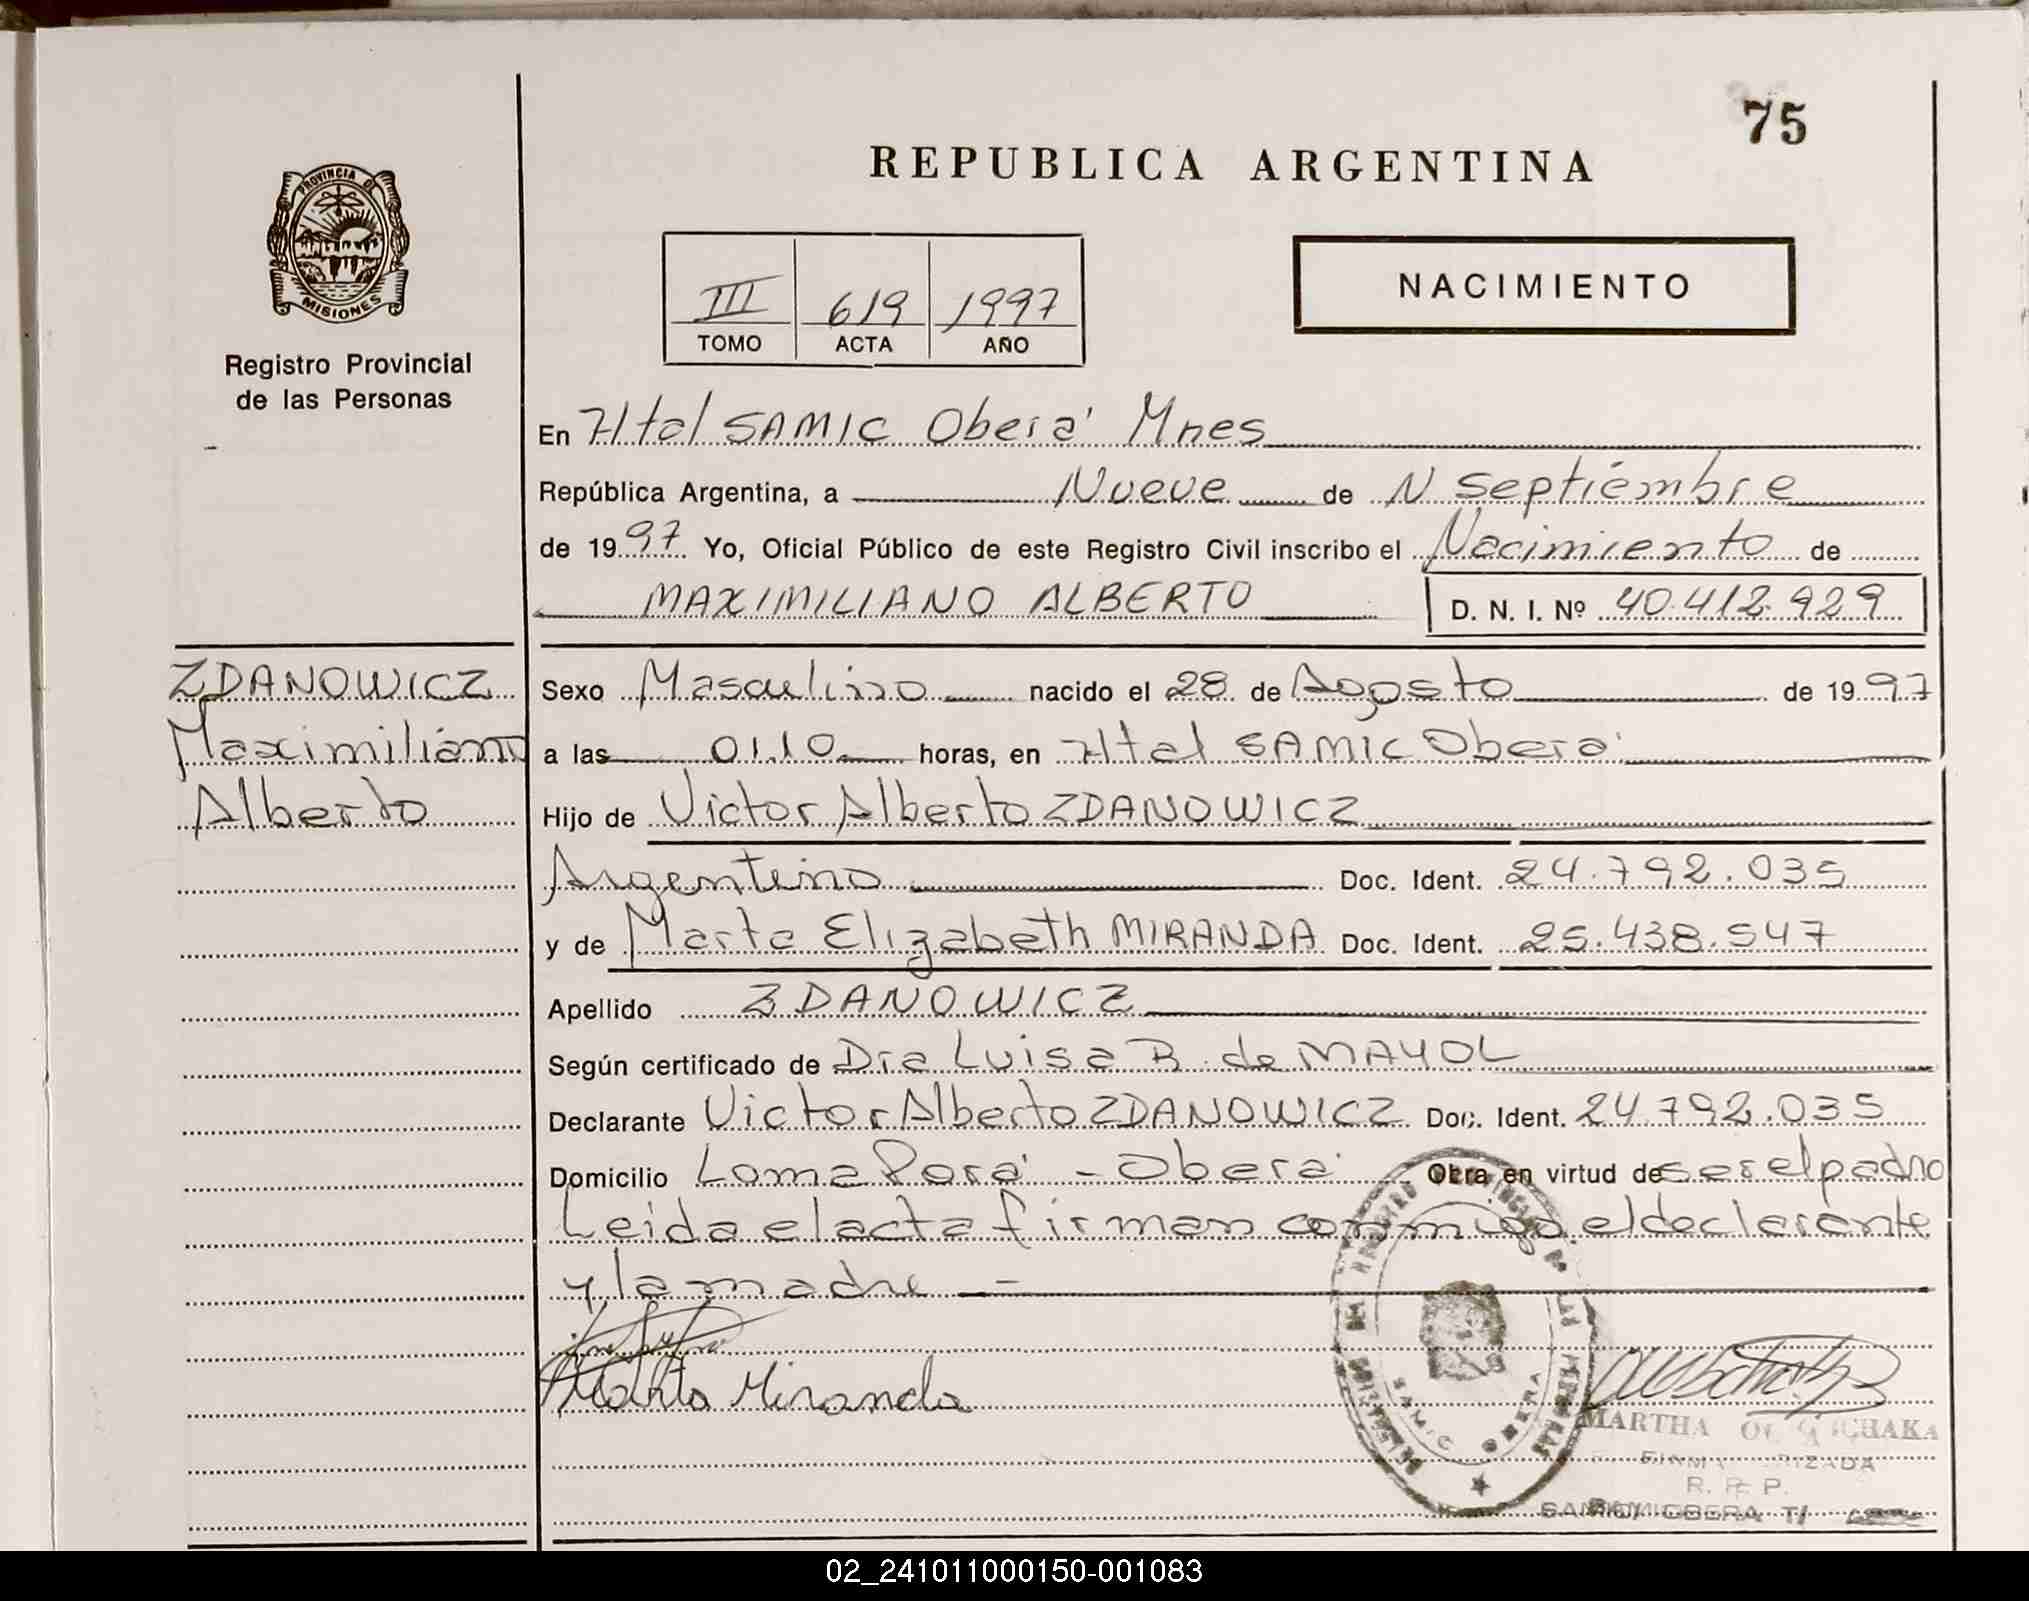 75
REPUBLICA ARGENTINA
PROVINCIA DE
MISIONES
Registro Provincial
de las Personas
NACIMIENTO
III 619 1997
TOMO ACTA AÑO
En Htal SAMIC Oberá Mnes
República Argentina, a Nueve de N Septiembre
de 1997 Yo, Oficial Público de este Registro Civil inscribo el Nacimiento de
MAXIMILIANO ALBERTO D. N. I. Nº 40.412.929
ZDANOWICZ
Maximiliano
Alberto
Sexo Masculino nacido el 28 de Agosto de 1997
a las 01.10 horas, en Htal SAMIC Oberá
Hijo de Victor Alberto ZDANOWICZ
Argentino Doc. Ident. 24.792.035
y de Marta Elizabeth MIRANDA Doc. Ident. 25.438.547
Apellido ZDANOWICZ
Según certificado de Dra Luisa B. de MAYOL
Declarante Victor Alberto ZDANOWICZ Doc. Ident. 24.792.035
Domicilio Loma Porá - Oberá Obra en virtud de ser el padre
Leida el acta firman conmigo el declarante
y la madre
Marta Miranda
SAMIC OBERA
MARTHA
R. P. P.
02_241011000150-001083